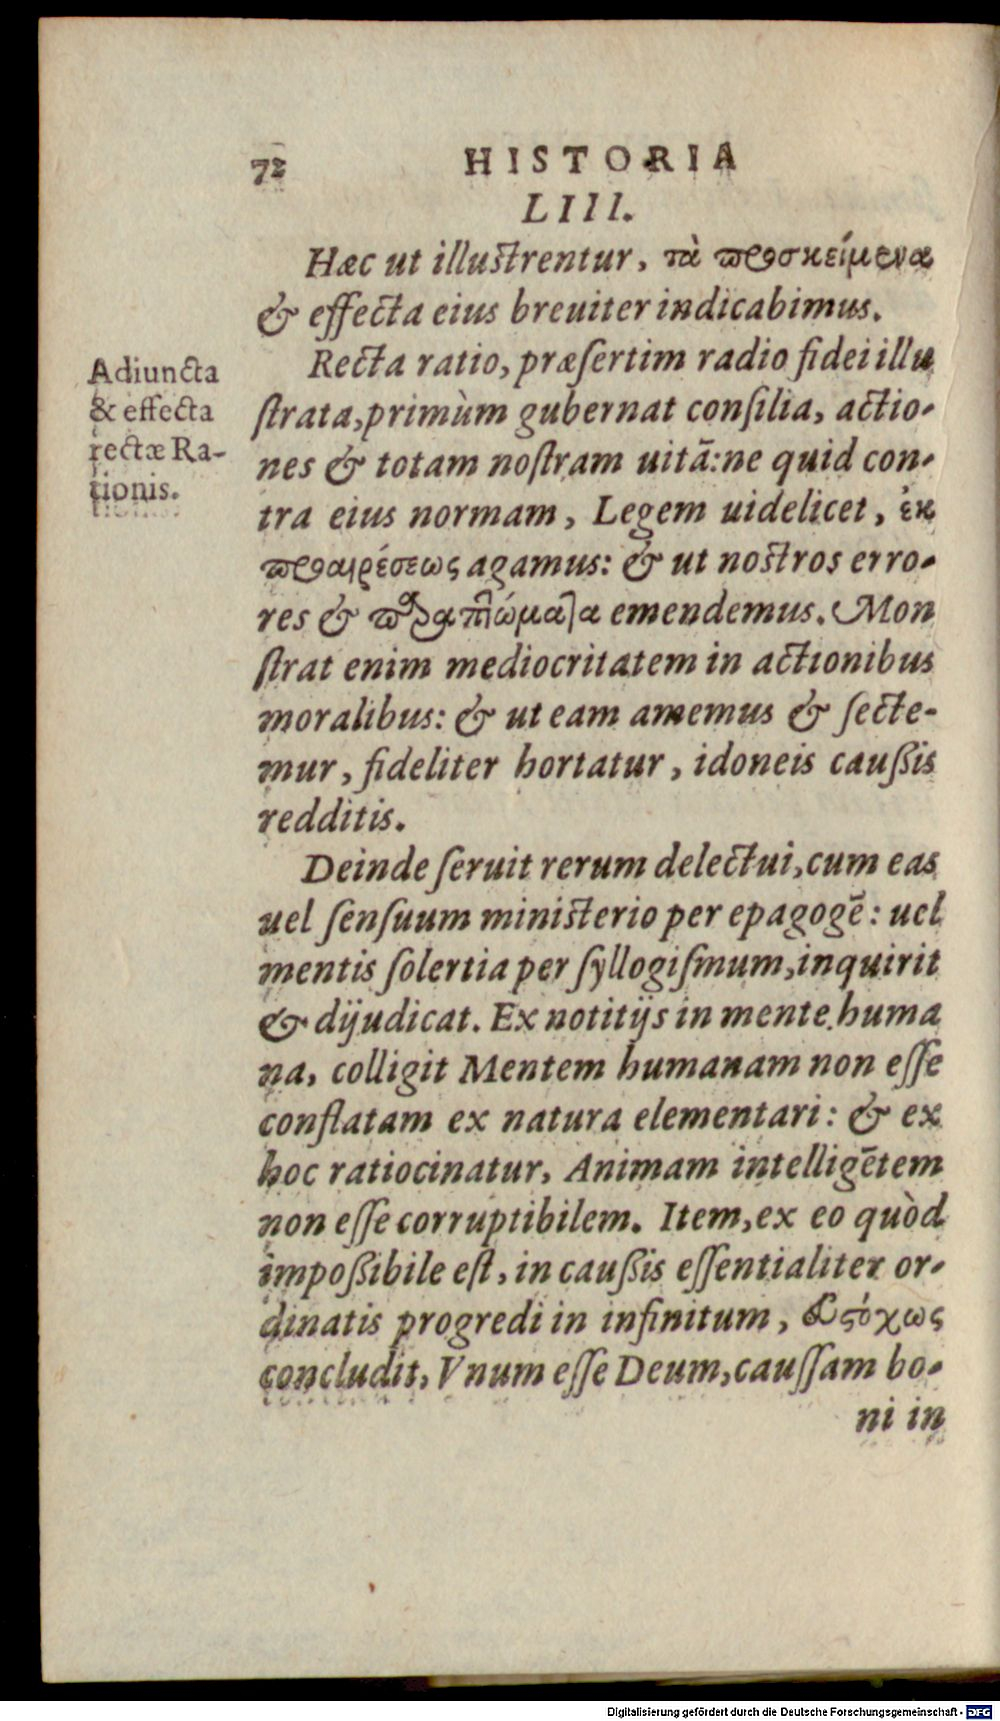 72 HISTORIA
LIIII.
Hæc ut illuſtrentur, τὰ προσκείμενα
& effecta eius breuiter indicabimus.
Adiuncta
& effecta
rectæ Ra-
tionis.
Recta ratio, præſertim radio fidei illu
ſtrata, primùm gubernat conſilia, actio-
nes & totam noſtram uitã: ne quid con-
tra eius normam, Legem uidelicet, ἐκ
προαιρέσεως agamus: & ut noſtros erro-
res & παραπτώματα emendemus. Mon
ſtrat enim mediocritatem in actionibus
moralibus: & ut eam amemus & ſecte-
mur, fideliter hortatur, idoneis cauſsis
redditis.
Deinde ſeruit rerum delectui, cum eas
uel ſenſuum miniſterio per epagogẽ: uel
mentis ſolertia per ſyllogiſmum, inquirit
& dijudicat. Ex notitijs in mente huma
na, colligit Mentem humanam non eſſe
conflatam ex natura elementari: & ex
hoc ratiocinatur, Animam intelligẽtem
non eſſe corruptibilem. Item, ex eo quòd
impoſsibile eſt, in cauſsis eſſentialiter or-
dinatis progredi in infinitum, εὐστόχως
concludit, Vnum eſſe Deum, cauſſam bo-
ni in
Digitalisierung gefördert durch die Deutsche Forschungsgemeinschaft - DFG